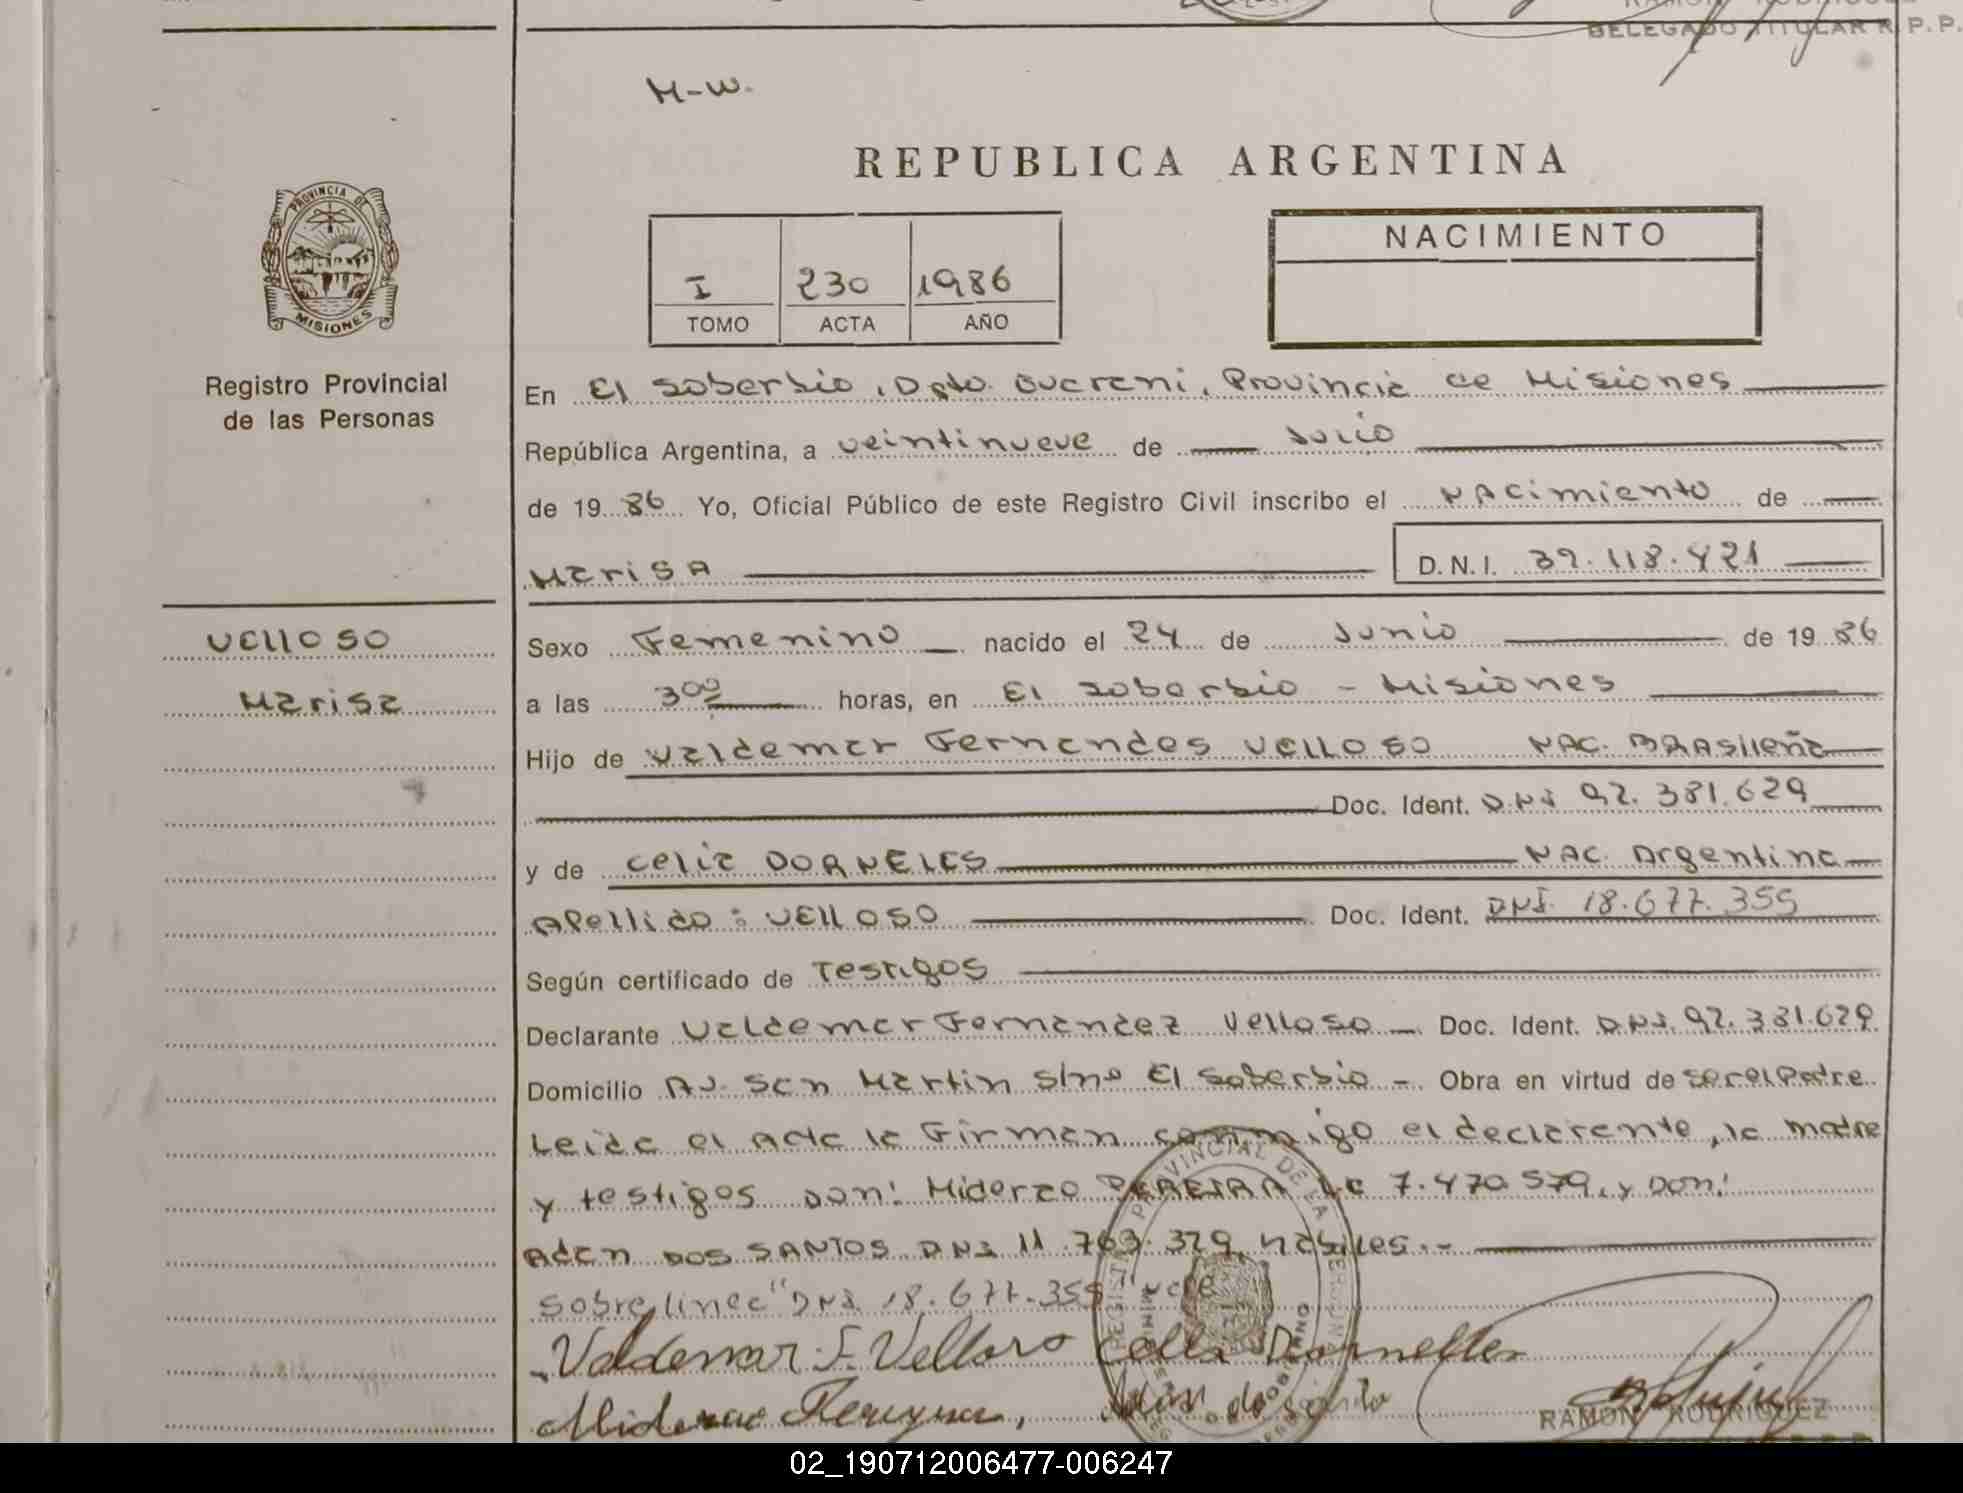 RAMON RODRIGUEZ
DELEGADO TITULAR R.P.P.
M-W.
REPUBLICA ARGENTINA
PROVINCIA DE
MISIONES
Registro Provincial
de las Personas
I 230 1986
TOMO ACTA AÑO
NACIMIENTO
En El Soberbio, Dpto. Guarani, Provincia de Misiones
República Argentina, a veintinueve de Julio
de 19 86 Yo, Oficial Público de este Registro Civil inscribo el NACimiento de
MarisA D.N.I. 32.118.421
VELLOSO
Marisa
Sexo Femenino nacido el 24 de Junio de 19 86
a las 3°° horas, en El Soberbio - Misiones
Hijo de Valdemar Fernandes VELLOSO NAC. BRASileña
Doc. Ident. DNI 92.381.629
y de Celia DORNELES NAC. Argentina
Apellido: VELLOSO Doc. Ident. DNI. 18.677.355
Según certificado de Testigos
Declarante Valdemar Fernandez Velloso Doc. Ident. DNI. 92.381.629
Domicilio Av. San Martin s/nº El Soberbio - Obra en virtud de ser el Padre
Leida el Acta la Firman conmigo el declarante, la madre
y testigos Don: Miderzo PEREIRA LE 7.470.579, y Don:
Adan DOS SANTOS DNI 11.763.329, habiles.-
Sobre linea "DNI. 18.677.355" vale
Valdemar F. Velloso Celia Dornelles
RAMON RODRIGUEZ
02_190712006477-006247